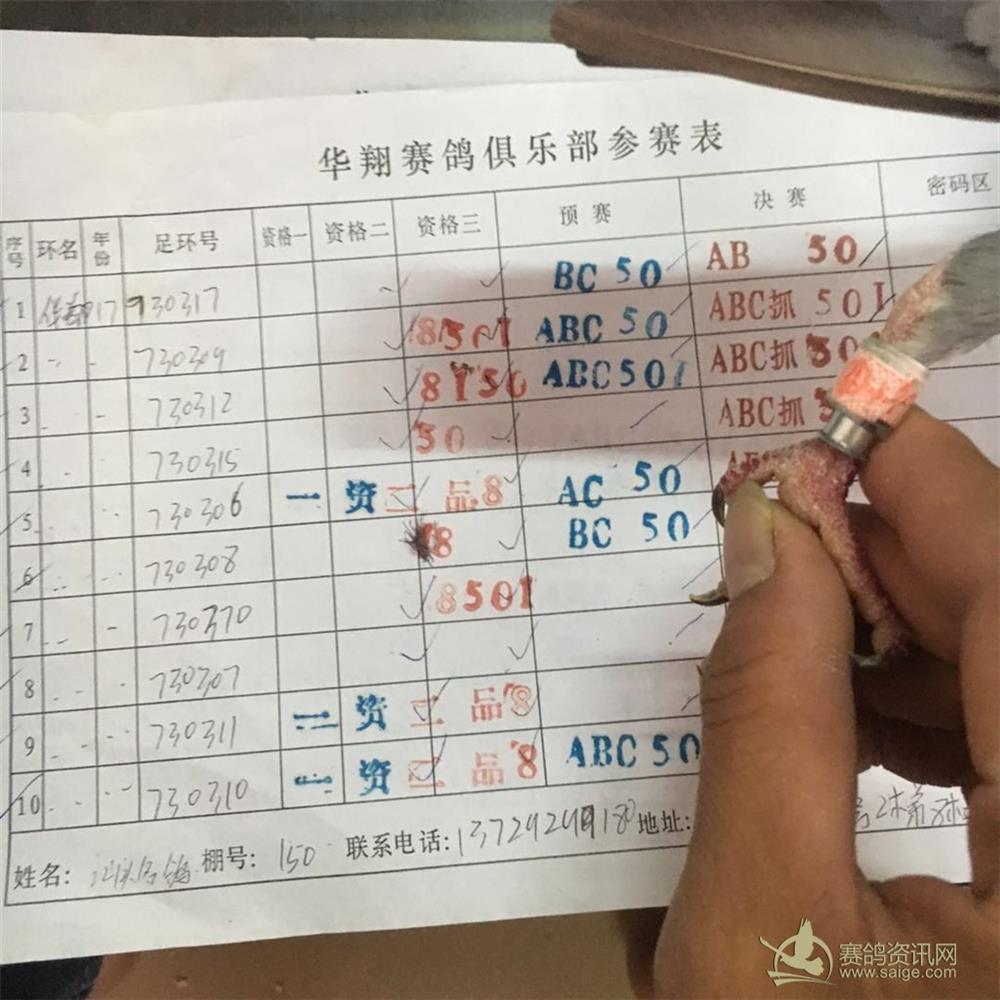 华翔赛鸽俱乐部参赛表
序号 环名 年份 足环号 资格一 资格二 资格三 预赛 决赛 密码区
1 华翔 17 730317 BC 50 AB 50
2 730309 8501 ABC 50 ABC抓 501
3 730312 8150 ABC 501 ABC抓 50
4 730315 50 ABC抓
5 730306 一资 二品8 AC 50
6 730308 8 BC 50
7 730370 8501
8 730307
9 730311 二资 二品8
10 730310 二资 二品8 ABC 50
姓名: 棚号: 150 联系电话: 地址:
赛鸽资讯网
www.saige.com